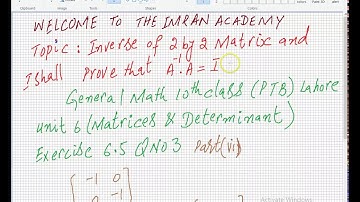 WELCOME TO THE IMRAN ACADEMY
Topic: Inverse of 2 by 2 Matrix and
I shall Prove that A⁻¹.A = I
General Math 10th class (PTB) Lahore
unit 6 (Matrices & Determinant)
Exercise 6.5 Q NO 3 Part (vi)
-1 0
0 -1
Activate Windows